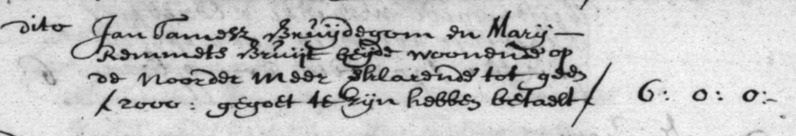 dito Jan Tamesz Bruijdegom en Marij
Remmets Bruijt beijde woonende op
de Noorder Meer verklarende tot geen
ƒ 2000: gegoet te zijn hebben betaelt ƒ 6: 0: 0:-